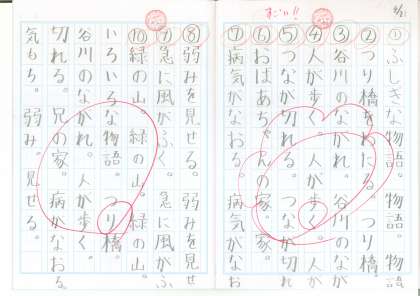 8/31
すごい!!
①ふしぎな物語。物語。
②つり橋をわたる。つり橋。
③谷川のながれ。谷川のなが
④人が歩く。人が歩く。人が
⑤つなが切れる。つなが切れ
⑥おばあちゃんの家。家。
⑦病気がなおる。病気がなお
⑧弱みを見せる。弱みを見せ
⑨急に風がふく。急に風がふ
⑩緑の山。緑の山。緑の山。
いろいろな物語。つり橋。
谷川のながれ。人が歩く。
切れる。兄の家。病がなおる
気もち。弱み。見せる。